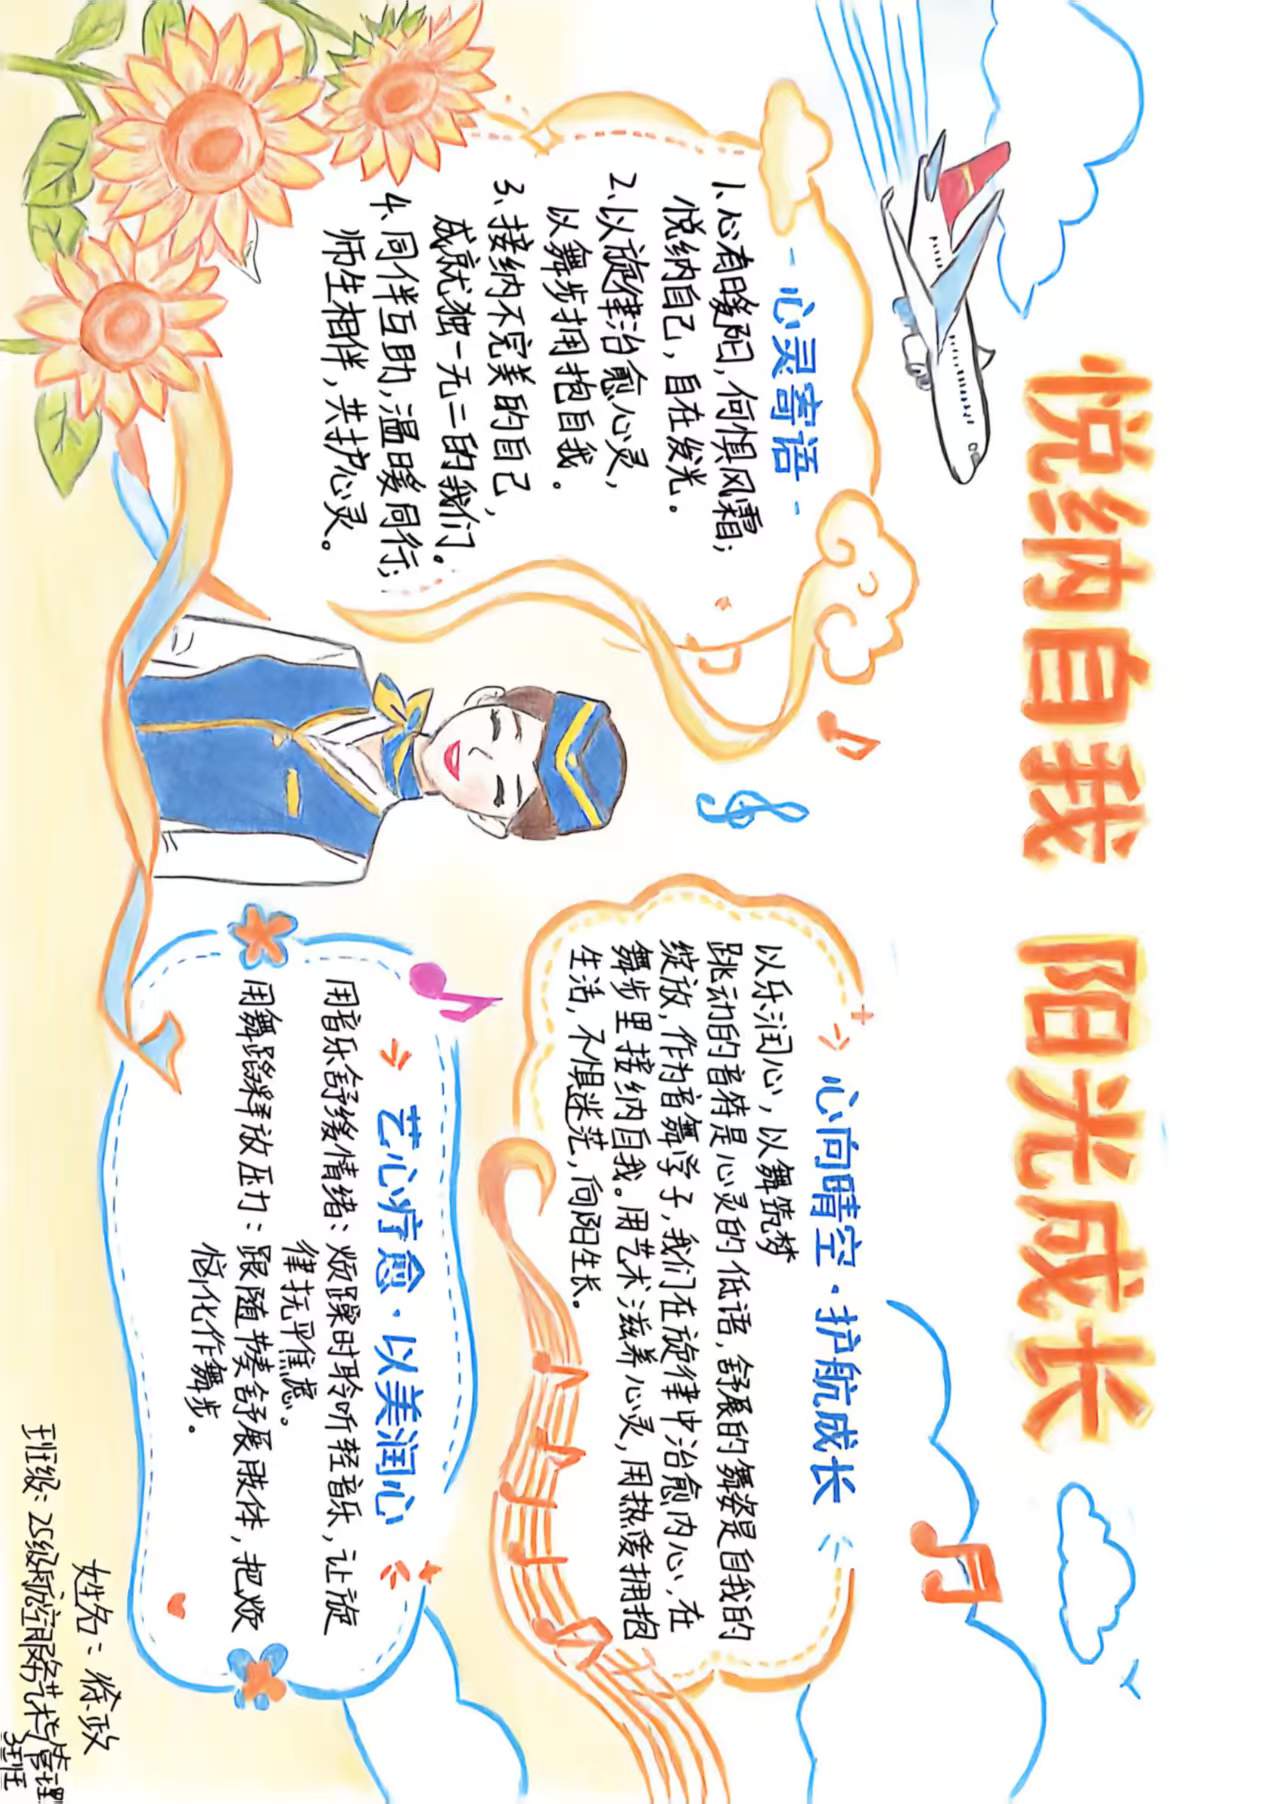 悦纳自我 阳光成长
-心灵寄语-
1.心有暖阳,何惧风霜;
悦纳自己,自在发光。
2.以旋律治愈心灵,
以舞步拥抱自我。
3.接纳不完美的自己,
成就独一无二的我们。
4.同伴互助,温暖同行;
师生相伴,共护心灵。
心向晴空·护航成长
以乐润心,以舞筑梦
跳动的音符是心灵的低语,舒展的舞姿是自我的
绽放。作为音舞学子,我们在旋律中治愈内心,在
舞步里接纳自我。用艺术滋养心灵,用热爱拥抱
生活,不惧迷茫,向阳生长。
艺心疗愈·以美润心
用音乐舒缓情绪:烦躁时聆听轻音乐,让旋
律抚平焦虑。
用舞蹈释放压力:跟随节奏舒展肢体,把烦
恼化作舞步。
姓名:徐政
班级:25级航空服务艺术与管理